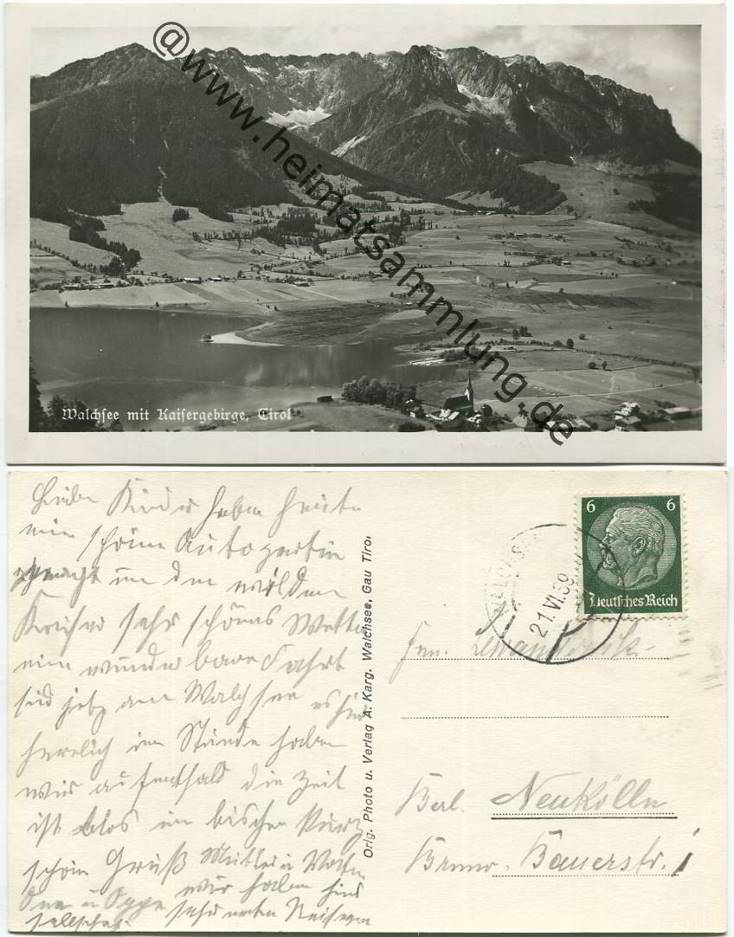 @www.heimatsammlung.de
Walchsee mit Kaisergebirge, Tirol
Liebe Kinder haben heute
eine schöne Autopartie
gemacht um den wilden
Kaiser sehr schönes Wetter
eine wunderbare Fahrt
sind jetz am Walchsee es hier
herrlich im Stunde haben
wir aufenthalt die Zeit
ist blos im bischen Kurz
schön Gruß Mutter u Vater
wir haben
sehr netten
Orig. Photo u. Verlag A. Karg, Walchsee, Gau Tirol
6 6
Deutsches Reich
21.VI.39
Fam.
Berl. Neukölln
Bruno-Bauerstr. 1